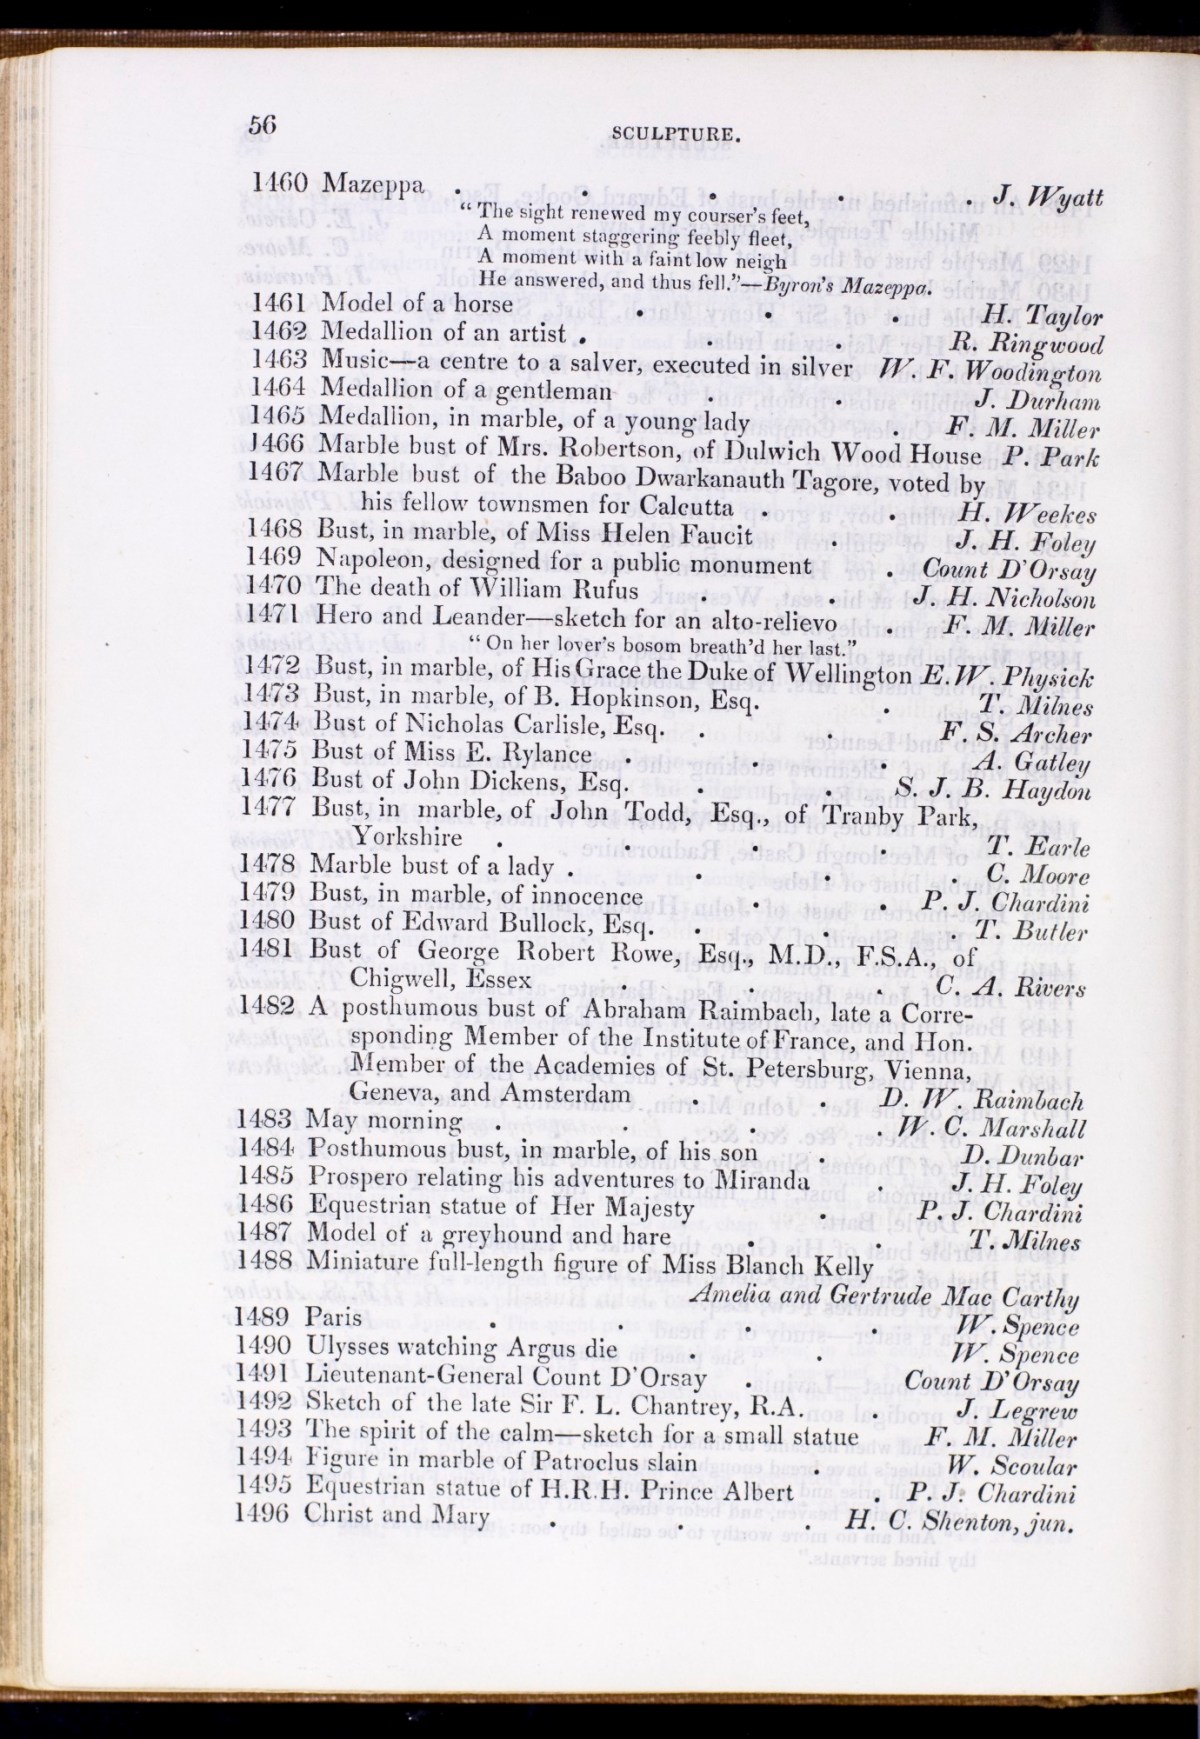 56
SCULPTURE.
1460 Mazeppa . . . . . J. Wyatt
“ The sight renewed my courser’s feet,
A moment staggering feebly fleet,
A moment with a faint low neigh
He answered, and thus fell.”—Byron’s Mazeppa.
1461 Model of a horse . . . H. Taylor
1462 Medallion of an artist . . . R. Ringwood
1463 Music—a centre to a salver, executed in silver W. F. Woodington
1464 Medallion of a gentleman . . J. Durham
1465 Medallion, in marble, of a young lady . F. M. Miller
1466 Marble bust of Mrs. Robertson, of Dulwich Wood House P. Park
1467 Marble bust of the Baboo Dwarkanauth Tagore, voted by
his fellow townsmen for Calcutta . . H. Weekes
1468 Bust, in marble, of Miss Helen Faucit . J. H. Foley
1469 Napoleon, designed for a public monument . Count D’Orsay
1470 The death of William Rufus . . J. H. Nicholson
1471 Hero and Leander—sketch for an alto-relievo . F. M. Miller
“ On her lover’s bosom breath’d her last.”
1472 Bust, in marble, of His Grace the Duke of Wellington E. W. Physick
1473 Bust, in marble, of B. Hopkinson, Esq. . T. Milnes
1474 Bust of Nicholas Carlisle, Esq. . . F. S. Archer
1475 Bust of Miss E. Rylance . . . A. Gatley
1476 Bust of John Dickens, Esq. . . S. J. B. Haydon
1477 Bust, in marble, of John Todd, Esq., of Tranby Park,
Yorkshire . . . . T. Earle
1478 Marble bust of a lady . . . . C. Moore
1479 Bust, in marble, of innocence . . P. J. Chardini
1480 Bust of Edward Bullock, Esq. . . . T. Butler
1481 Bust of George Robert Rowe, Esq., M.D., F.S.A., of
Chigwell, Essex . . . C. A. Rivers
1482 A posthumous bust of Abraham Raimbach, late a Corre-
sponding Member of the Institute of France, and Hon.
Member of the Academies of St. Petersburg, Vienna,
Geneva, and Amsterdam . . D. W. Raimbach
1483 May morning . . . . W. C. Marshall
1484 Posthumous bust, in marble, of his son . D. Dunbar
1485 Prospero relating his adventures to Miranda . J. H. Foley
1486 Equestrian statue of Her Majesty . P. J. Chardini
1487 Model of a greyhound and hare . . T. Milnes
1488 Miniature full-length figure of Miss Blanch Kelly
Amelia and Gertrude Mac Carthy
1489 Paris . . . . W. Spence
1490 Ulysses watching Argus die . . W. Spence
1491 Lieutenant-General Count D’Orsay . Count D’Orsay
1492 Sketch of the late Sir F. L. Chantrey, R.A. . J. Legrew
1493 The spirit of the calm—sketch for a small statue F. M. Miller
1494 Figure in marble of Patroclus slain . W. Scoular
1495 Equestrian statue of H.R.H. Prince Albert . P. J. Chardini
1496 Christ and Mary . . . H. C. Shenton, jun.